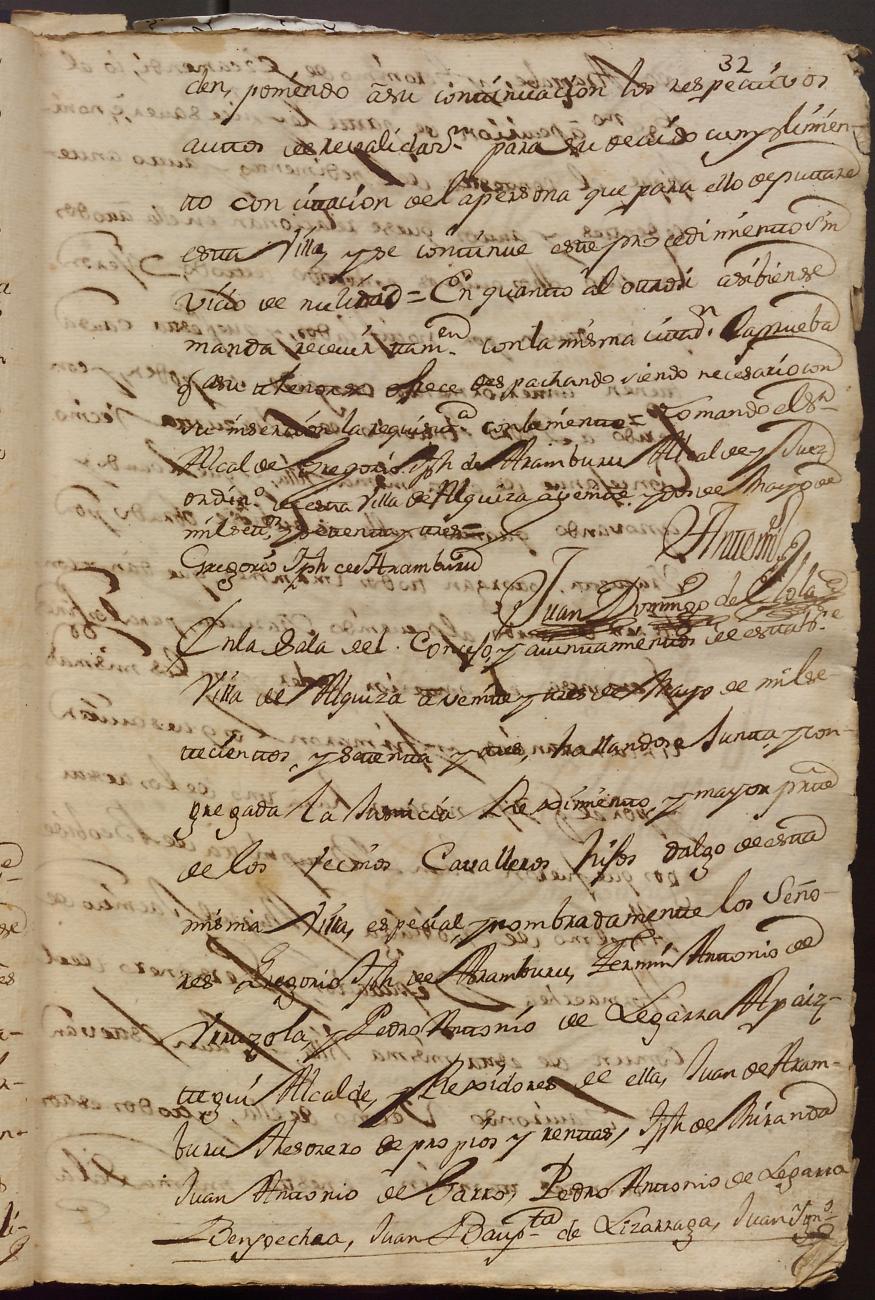 32
den, poniendo a su continuacion los respectivos
auttos de revalidazn. para su devido cumplimien-
tto con citacion de la persona que para ello deputtare
esta Villa, y se continue este procedimiento sin
vicio de nulidad = En quantto al ottrosi asibien se
manda recevir ttamen. con la misma cittazn. la prueba
q. a su thenor se ofrece despachando siendo necesario con
su insercion la requisita. combeniente = Lo mando el Sr.
Alcalde Gregorio Jph de Aramburu Alcalde y Juez
ordino. de esta Villa de Alquiza a veinte y dos de Mayo de
mil settos. y settenta y tres =
Gregorio Jph de Aramburu
Antemi
Juan Domingo de Olola
En la Sala del Concejo, y aiuntamientos de esta Noe.
Villa de Alquiza a veinte y tres de Mayo de mil se-
ttecienttos, y settenta y tres, hallandose Juntta, y con-
gregada la Justicia Reximiento, y mayor partte
de los vecinos Cavalleros hijos dalgo de esta
misma Villa, especial, y nombradamente los Seño-
res Gregorio Jph de Aramburu, Fermin Antonio de
Yrruzola, y Pedro Antonio de Legarra Apaiz-
ttegui Alcalde, y Rexidores de ella, Juan de Aram-
buru Thesorero de propios y rentas, Jph de Miranda
Juan Antonio de Garro, Pedro Antonio de Legarra
Benyoechea, Juan Baupta. de Lizarraga, Juan Anto.